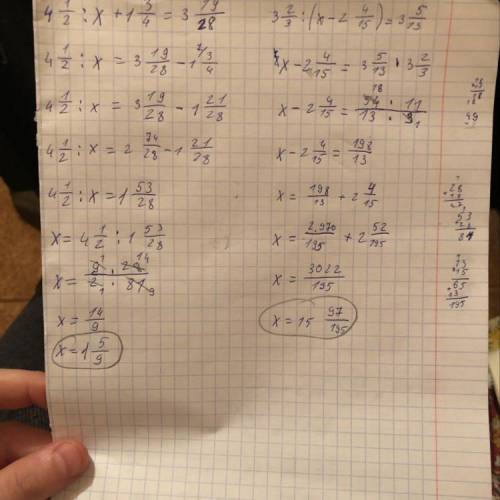 4 1/2 : x + 1 3/4 = 3 19/28
4 1/2 : x = 3 19/28 - 1 3/4
4 1/2 : x = 3 19/28 - 1 21/28
4 1/2 : x = 2 74/28 - 1 21/28
4 1/2 : x = 1 53/28
x = 4 1/2 : 1 53/28
x = 9/2 : 28/81
x = 14/9
x = 1 5/9
3 2/3 : (x - 2 4/15) = 3 5/13
x - 2 4/15 = 3 5/13 · 3 2/3
x - 2 4/15 = 54/13 : 11/3
x - 2 4/15 = 198/13
x = 198/13 + 2 4/15
x = 2.970/195 + 2 52/195
x = 3022/195
x = 15 97/195
28
53
81
13
15
65
13
195